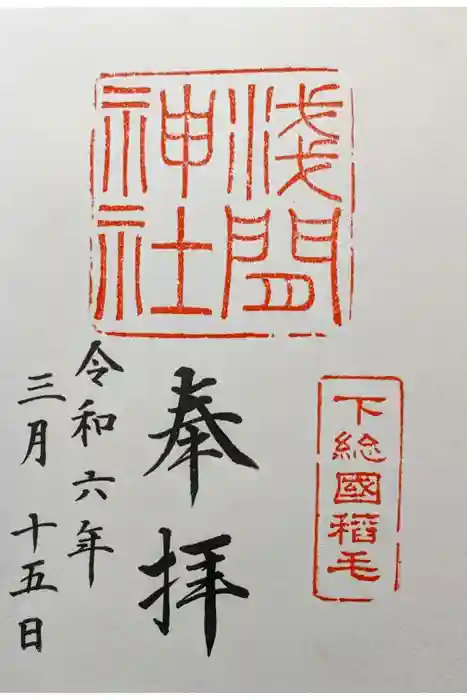 浅間
神社
下総國稲毛
奉拝
令和六年
三月 十五日